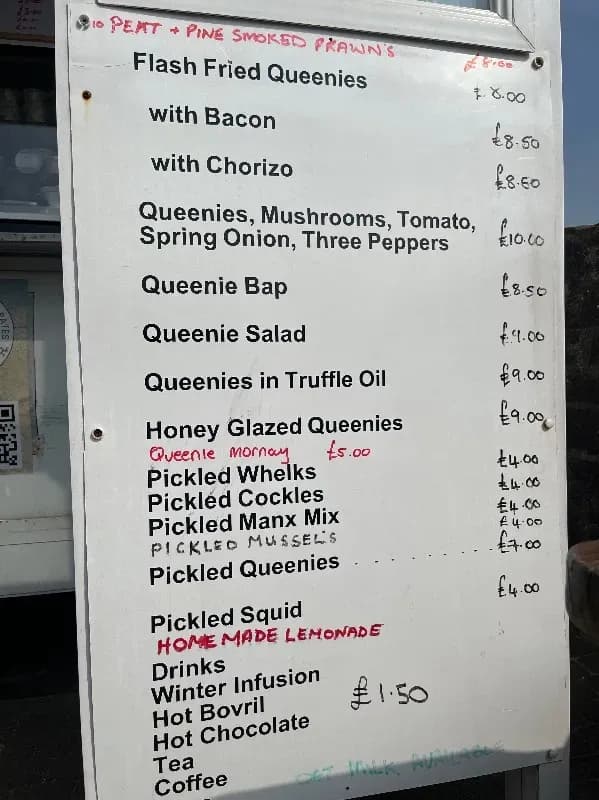 10 PEAT + PINE SMOKED PRAWN'S £8.00
Flash Fried Queenies £8.00
with Bacon £8.50
with Chorizo £8.50
Queenies, Mushrooms, Tomato,
Spring Onion, Three Peppers £10.00
Queenie Bap £8.50
Queenie Salad £9.00
Queenies in Truffle Oil £9.00
Honey Glazed Queenies £9.00
Queenie Mornay £5.00
Pickled Whelks £4.00
Pickled Cockles £4.00
Pickled Manx Mix £4.00
PICKLED MUSSEL'S £4.00
Pickled Queenies . . . . . . . . £7.00
Pickled Squid £4.00
HOME MADE LEMONADE
Drinks
Winter Infusion
Hot Bovril £1.50
Hot Chocolate
Tea
Coffee
OAT MILK AVAILABLE